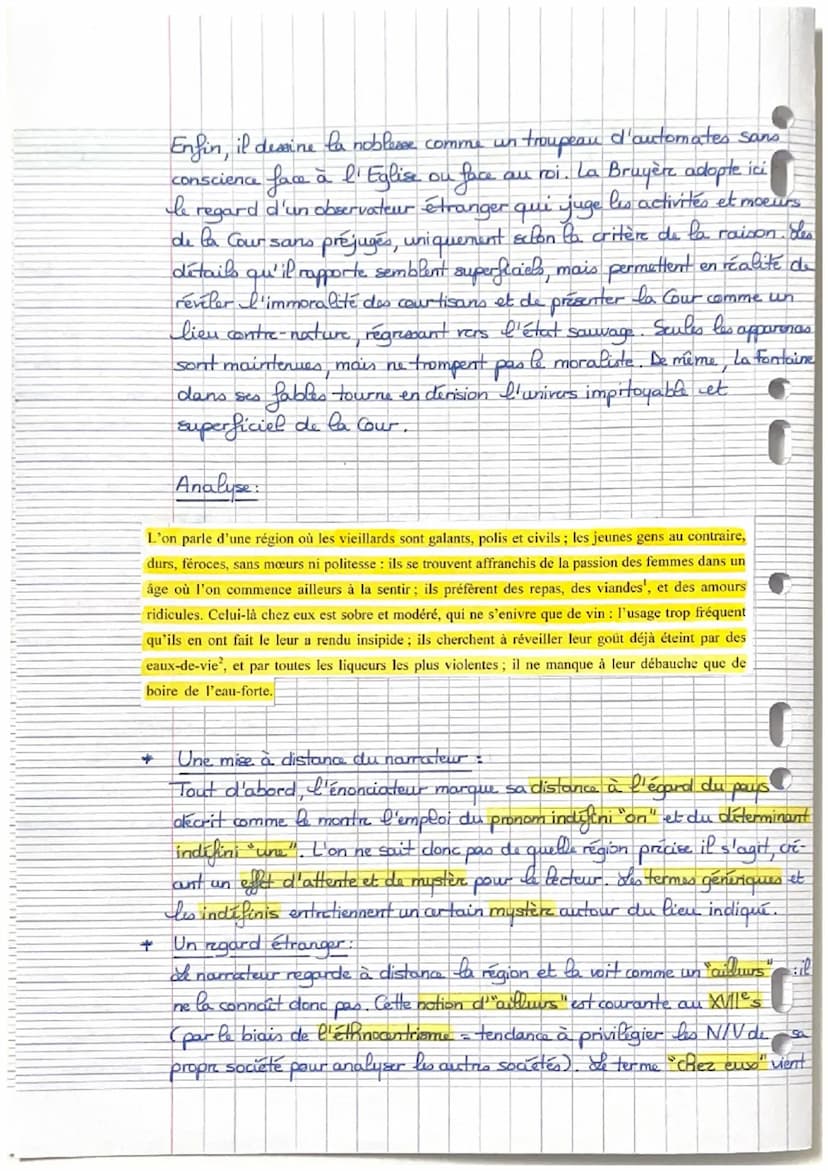 Enfin, il dessine la noblesse comme un troupeau d'automates sans
conscience face à l'Eglise ou face au roi. La Bruyère adopte ici
le regard d'un observateur étranger qui juge les activités et moeurs
de la Cour sans préjugés, uniquement selon la critère de la raison. Les
détails qu'il rapporte semblent superficiels, mais permettent en réalité de
révéler l'immoralité des courtisans et de présenter la Cour comme un
lieu contre-nature, régressant vers l'état sauvage. Seules les apparences
sont maintenues, mais ne trompent pas le moraliste. De même, La Fontaine
dans ses fables tourne en derision l'univers impitoyable et
superficiel de la Cour.
Analyse :
L'on parle d'une région où les vieillards sont galants, polis et civils ; les jeunes gens au contraire,
durs, féroces, sans mœurs ni politesse : ils se trouvent affranchis de la passion des femmes dans un
âge où l'on commence ailleurs à la sentir ; ils préfèrent des repas, des viandes¹, et des amours
ridicules. Celui-là chez eux est sobre et modéré, qui ne s'enivre que de vin : l'usage trop fréquent
qu'ils en ont fait le leur a rendu insipide ; ils cherchent à réveiller leur goût déjà éteint par des
eaux-de-vie², et par toutes les liqueurs les plus violentes ; il ne manque à leur débauche que de
boire de l'eau-forte.
+ Une mise à distance du narrateur :
Tout d'abord, l'énonciateur marque sa distance à l'égard du pays
décrit comme le montre l'emploi du pronom indéfini "on" et du déterminant
indéfini "une". L'on ne sait donc pas de quelle région précise il s'agit, cré-
ant un effet d'attente et de mystère pour le lecteur. Les termes génériques et
les indéfinis entretiennent un certain mystère autour du lieu indiqué.
+ Un regard étranger :
Le narrateur regarde à distance la région et la voit comme un "ailleurs" : il
ne la connaît donc pas. Cette notion d'"ailleurs" est courante au XVIIe s
(par le biais de l'éthnocentrisme = tendance à privilégier les N/V de sa
propre société pour analyser les autres sociétés). Le terme "chez eux" vient